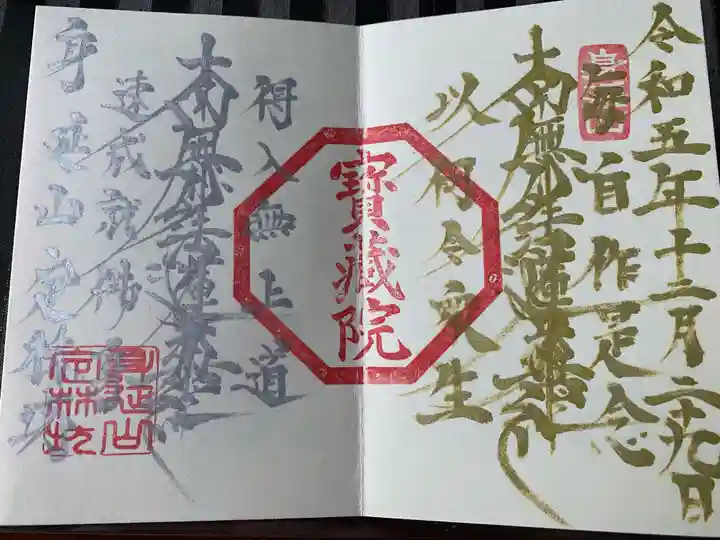 令和五年十二月二十九日
毎自作是念
南無妙法蓮華経
以何令衆生
寶藏院
得入無上道
南無妙法蓮華経
速成就佛身
身延山定林坊
身延山
定林坊